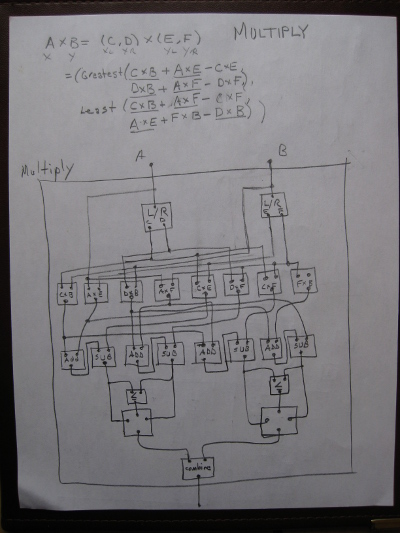 MULTIPLY
A × B = (C, D) × (E, F)
X Y XL YR YL YR
= (Greatest (C×B + A×E - C×E,
D×B + A×F - D×F),
Least (C×B + A×F - C×F,
A×E + F×B - D×B))
Multiply
A B
L/R L/R
C×B A×E D×B A×F C×E D×F C×F F×E
ADD SUB ADD SUB ADD SUB ADD SUB
combine